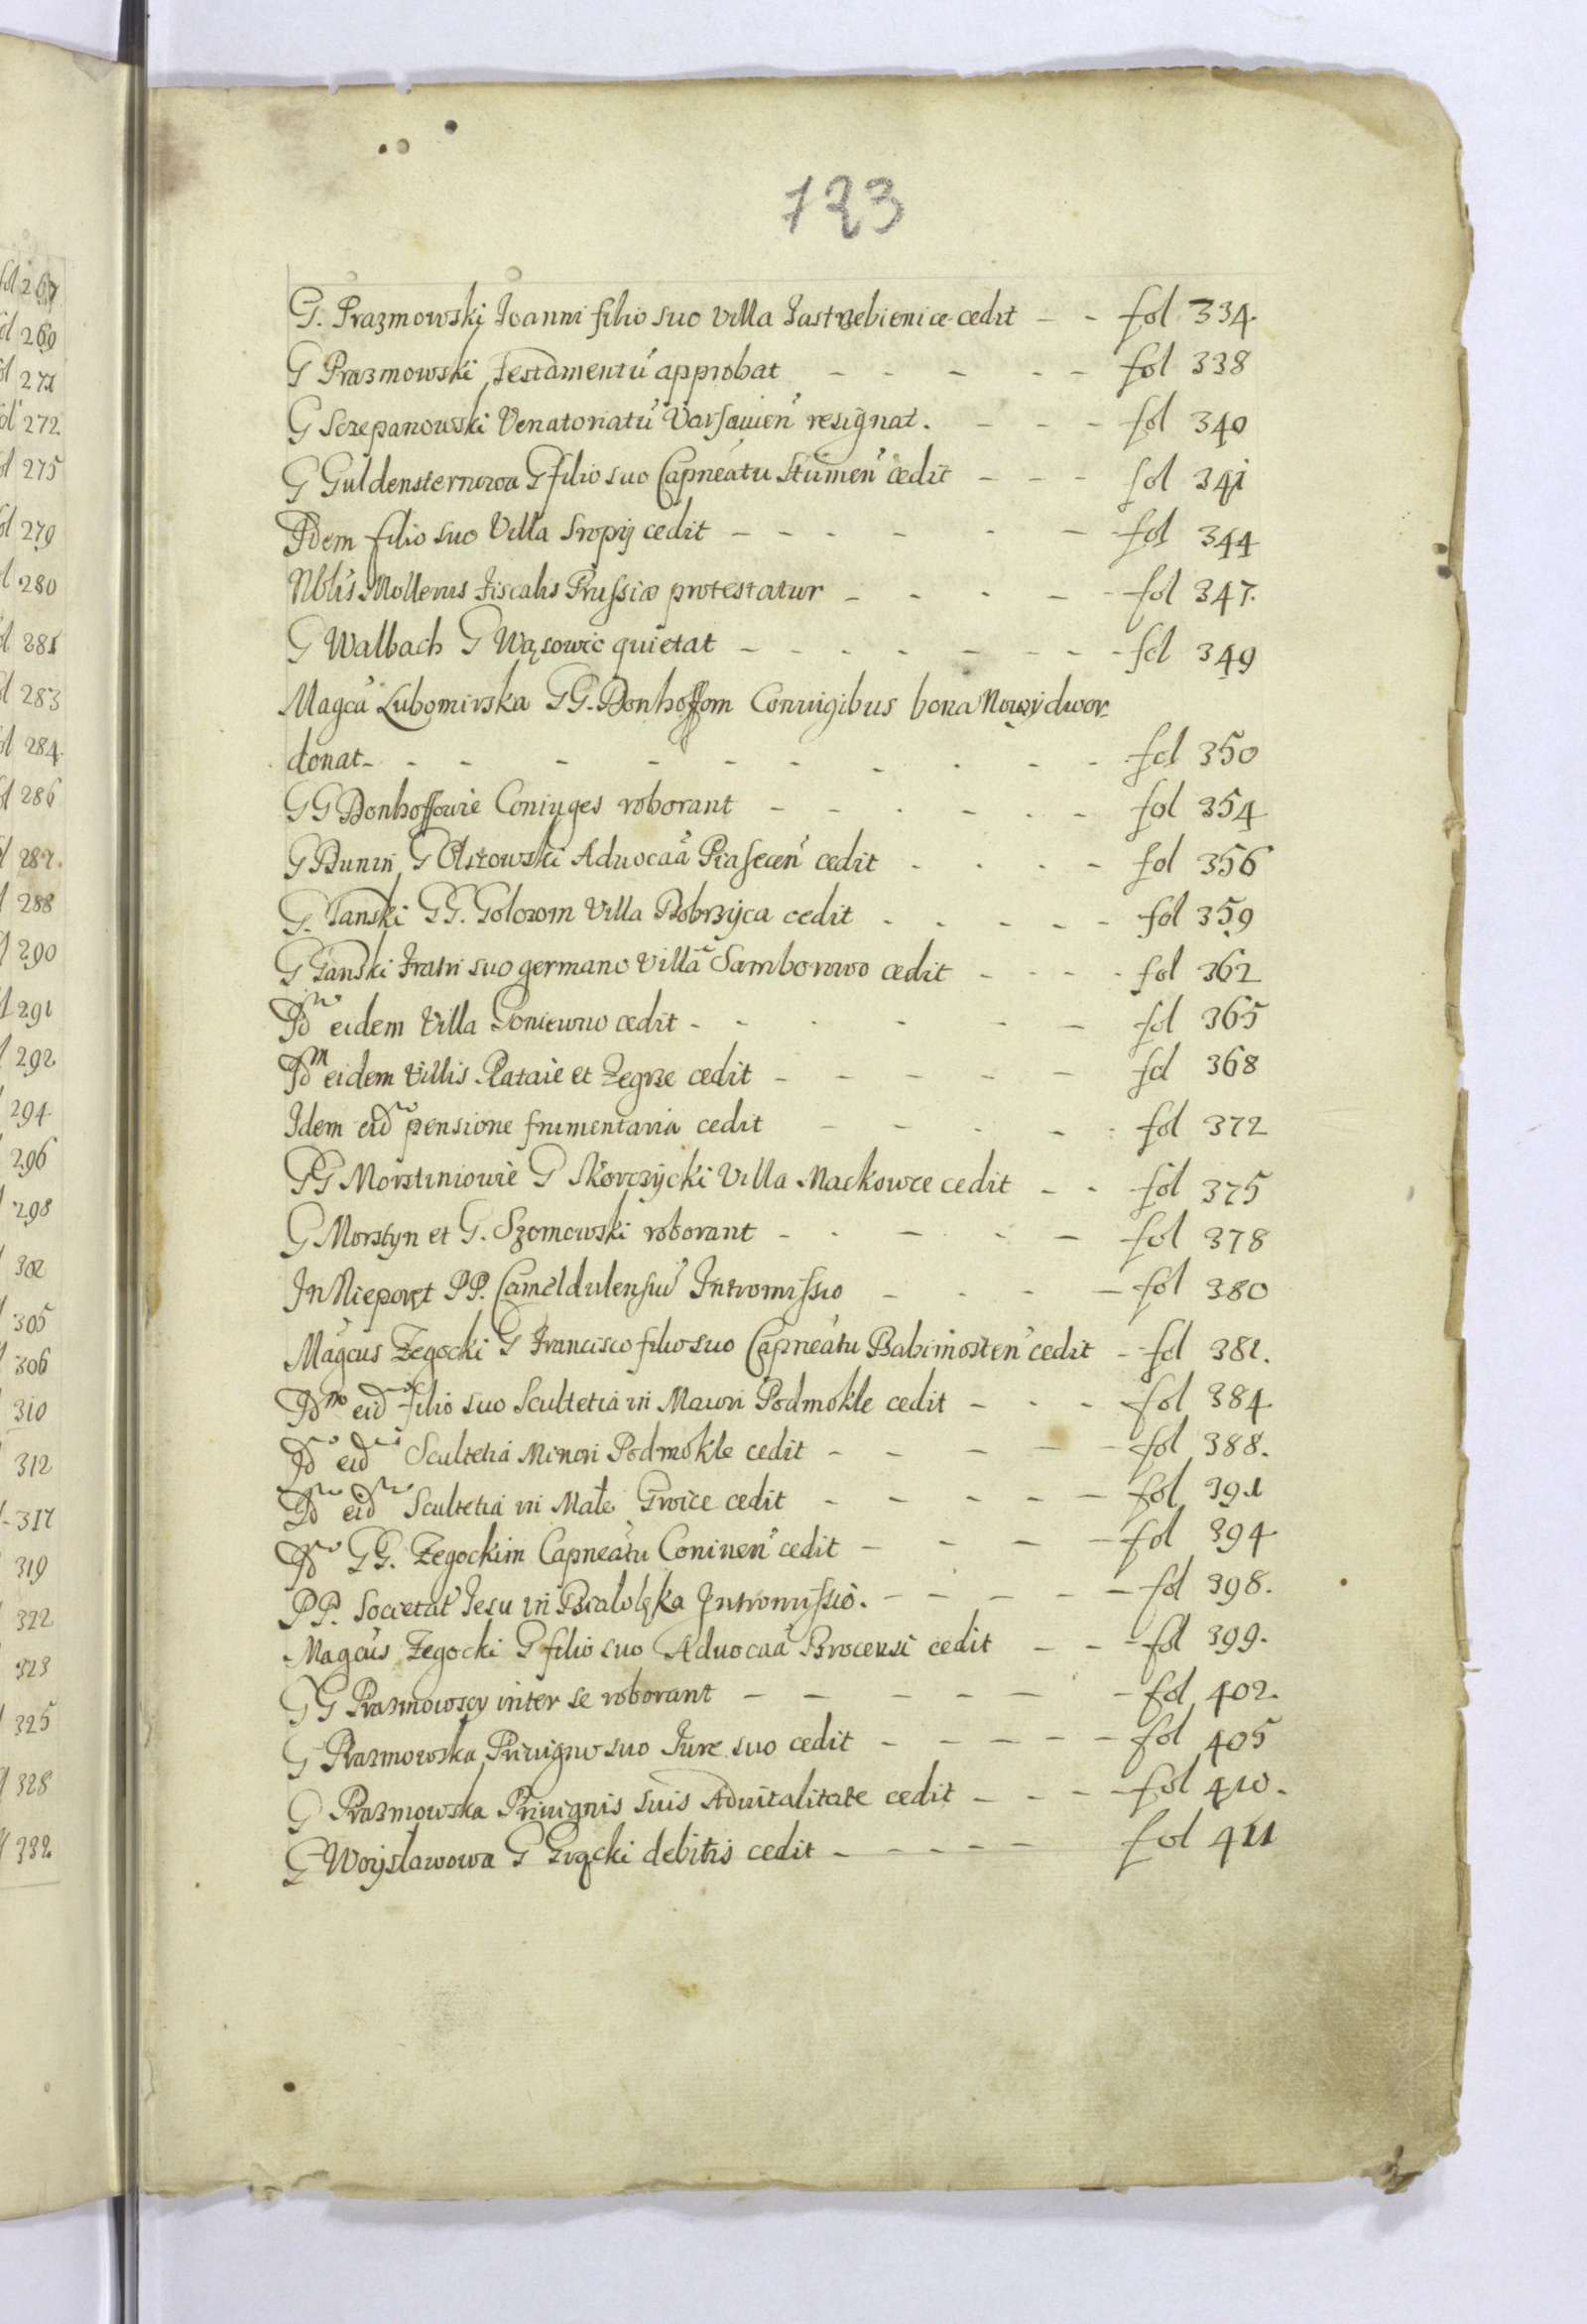 723
G. Prazmowski Joanni filio suo Villa Jastrzebienice cedit - - fol 334.
G Prazmowski Testamentū approbat - - - - - fol 338
G Sczepanowski Venatoriatū Varsauien̄ resignat. - - - fol 340
G Guldensternowa G filio suo Capneatu Stumen̄ cedit - - - fol 341
Idem filio suo Villa Sropij cedit - - - - - - fol 344
Nblis Mollerus Fiscalis Prussiæ protestatur - - - - - fol 347.
G Walbach G Wąsowic quietat - - - - - - - - fol 349
Magcā Lubomirska GG. Donhoffom Coniugibus bona Nowydwor
donat - - - - - - - - - - - - fol 350
GG Donhoffowie Coniuges roborant - - - - - - fol 354
G Dunin G Olszowski Aduocaā Piasecen̄ cedit - - - - fol 356
G. Tanski GG. Golczom Villa Dobrzyca cedit - - - - - fol 359
G Tanski Fratri suo germano Villa Samborowo cedit - - - - fol 362
Idm eidem Villa Goniewno cedit - - - - - - fol 365
Idm eidem Villis Rataie et Zegrze cedit - - - - - fol 368
Idem eid pensione frumentaria cedit - - - - : fol 372
GG Morstiniowie G Skorczycki Villa Mackowce cedit - - fol 375
G Morstyn et G. Szomowski roborant - - - - - fol 378
In Nieporęt PP. Cameldulensiū Intromissio - - - - fol 380
Magcus Zegocki G Francisco filio suo Capneatu Babimosten̄ cedit - fol 381.
Idm eid filio suo Scultetia in Maiori Podmokle cedit - - - fol 384
Id eid Scultetia Minori Podmokle cedit - - - - - fol 388.
Id eid Scultetia in Małe Groice cedit - - - - - fol 391
Id GG. Zegockim Capneatu Coninen̄ cedit - - - - fol 394
PP. Societat Jesu in Białolęka Intromissio. - - - - - fol 398.
Magcus Zegocki G filio suo Aduocaā Brocensi cedit - - - fol 399.
GG Prazmowscy inter se roborant - - - - - - fol 402.
G Prazmowska Priuigno suo Jure suo cedit - - - - - fol 405
G Prazmowska Priuignis suis Aduitalitate cedit - - - - fol 410.
G Woysławowa G Grącki debitis cedit - - - - fol 411